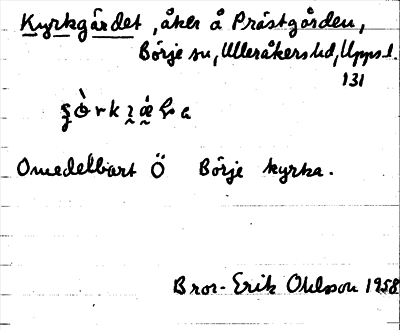 Kyrkgärdet, åker å Prästgården,
Börje sn, Ulleråkers hd, Upps. l.
131
Omedelbart Ö Börje kyrka.
Bror-Erik Ohlsson 1958